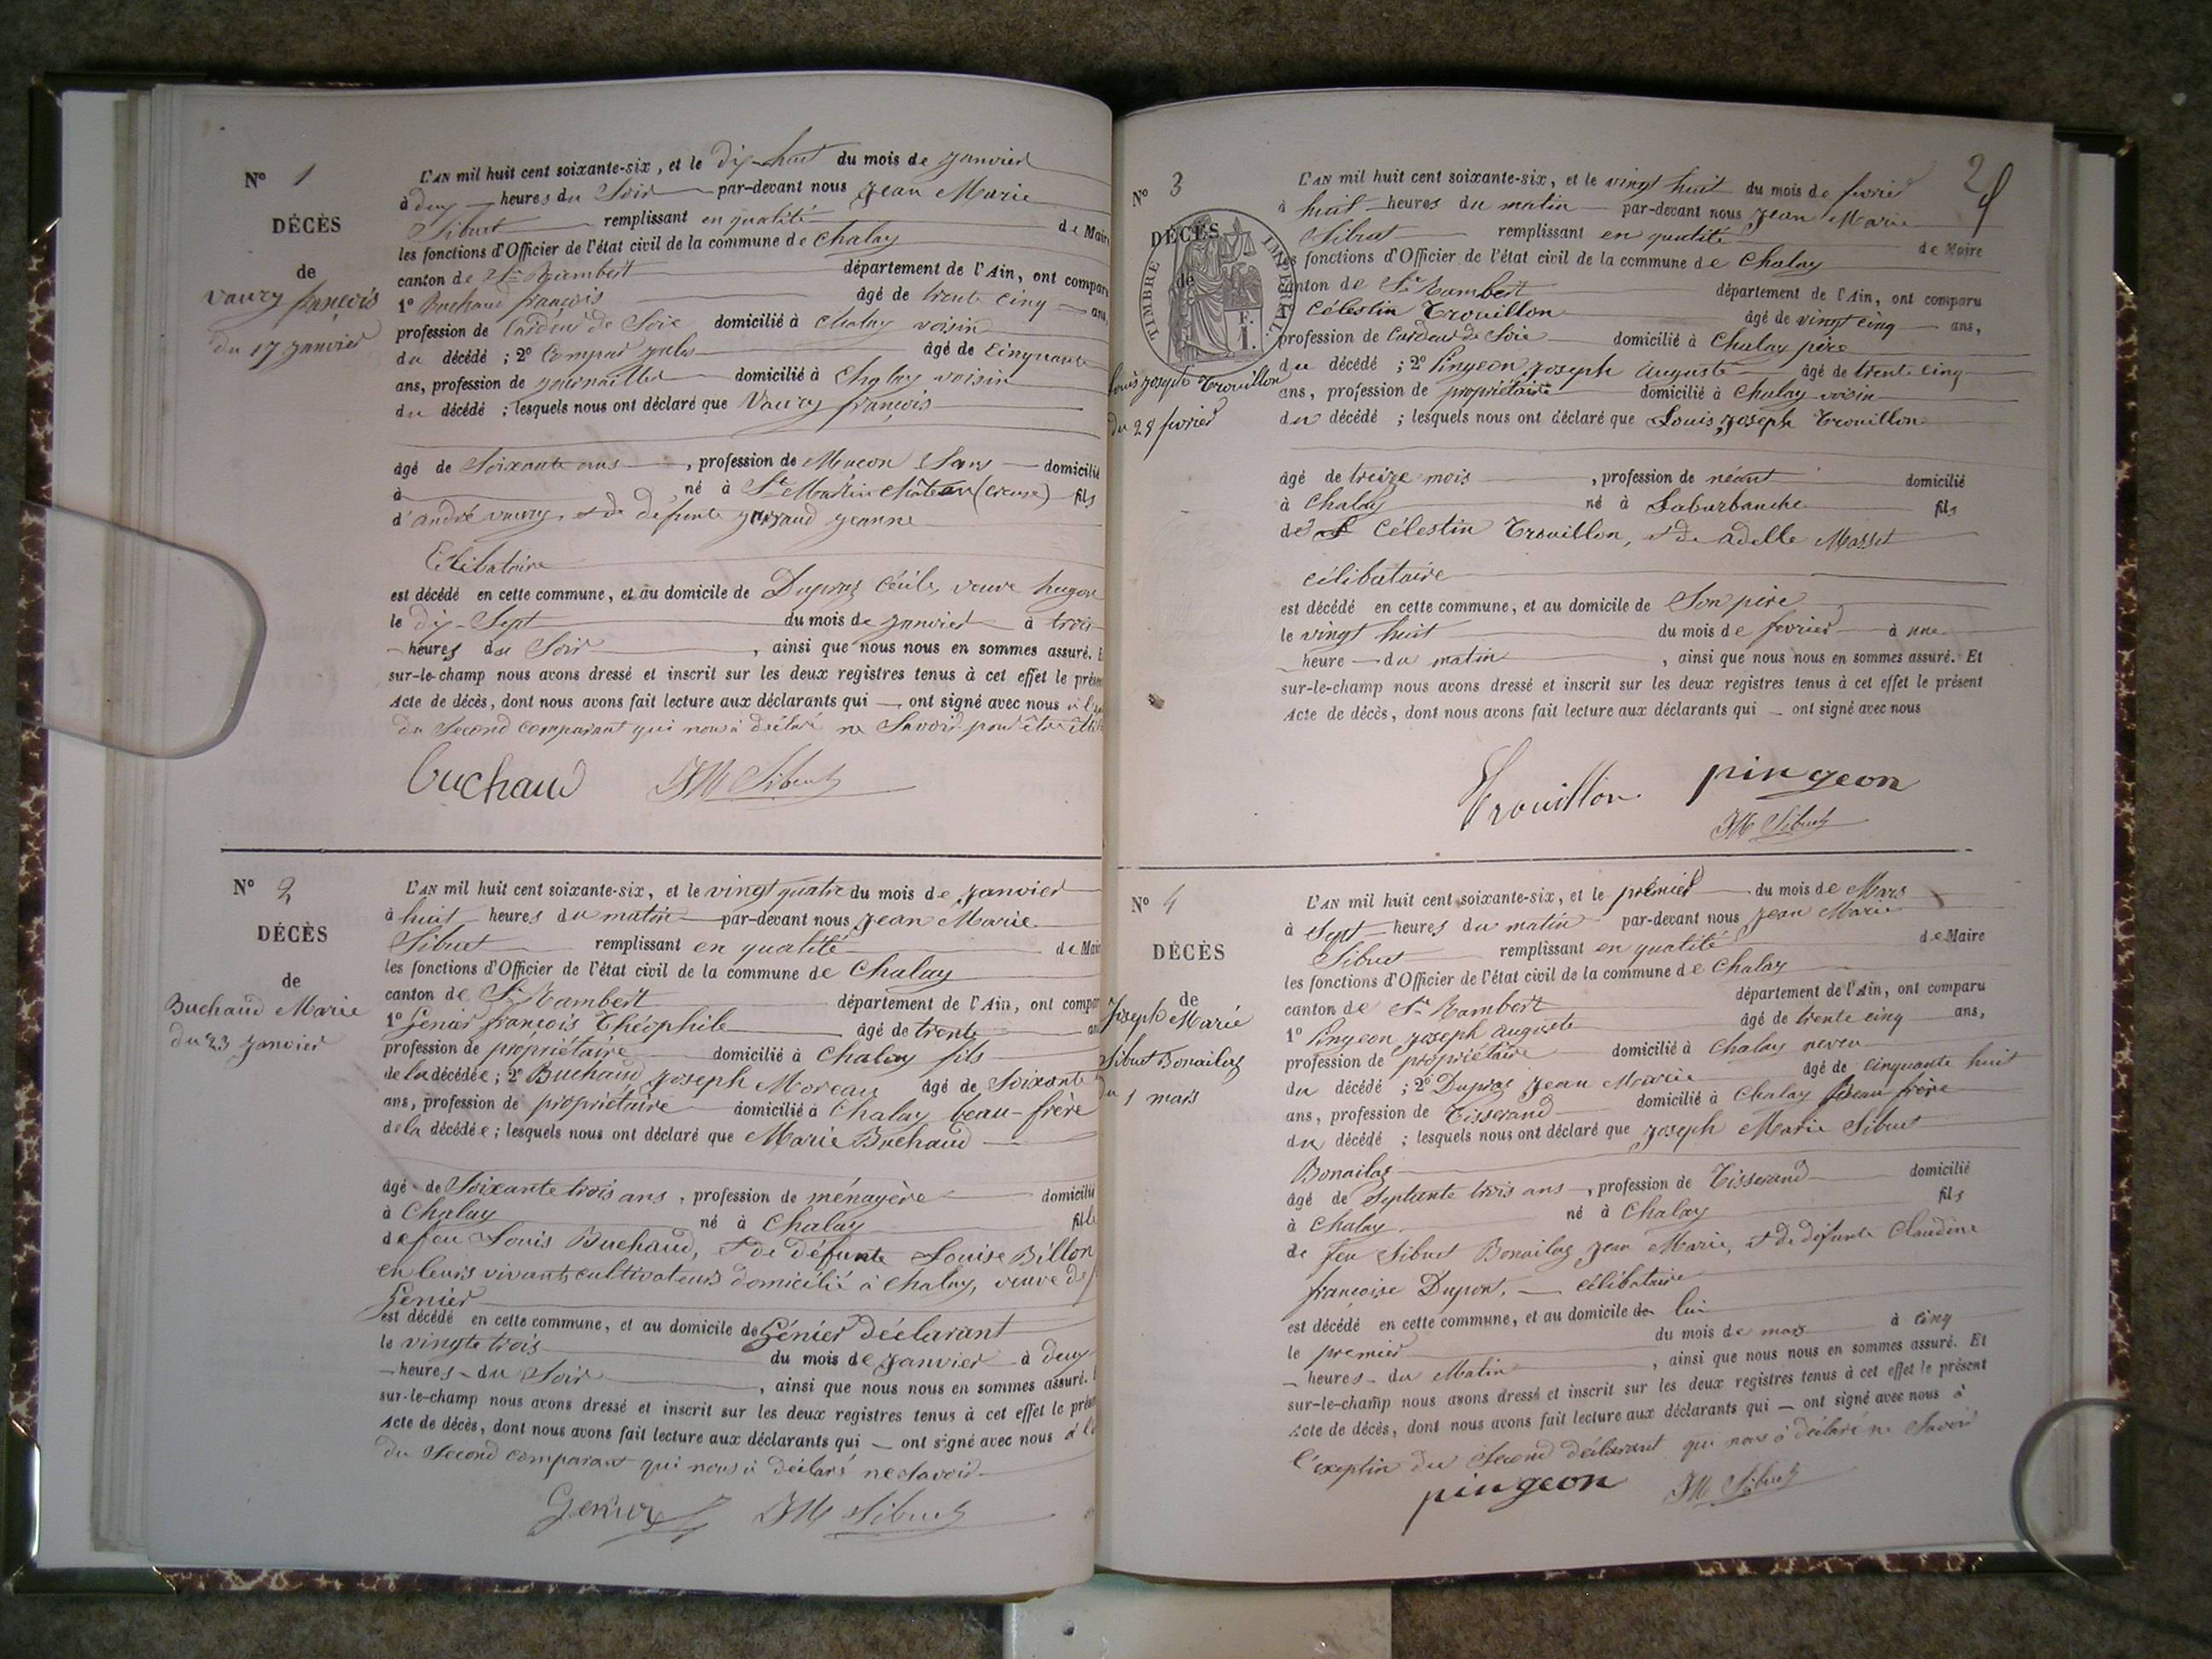 N° 1
DÉCÈS
de
Vaury françois
du 17 Janvier
L'AN mil huit cent soixante-six, et le dix-huit du mois de Janvier
à deux heures du Soir par-devant nous Jean Marie
Sibuet remplissant en qualité de Maire
les fonctions d'Officier de l'état civil de la commune de Chaley
canton de St Rambert département de l'Ain, ont comparu
1° Buchaud françois âgé de trente cinq ans,
profession de Cardeur de Soie domicilié à Chaley voisin
du décédé ; 2° Compar Jules âgé de Cinquante
ans, profession de journaillier domicilié à Chaley voisin
du décédé ; lesquels nous ont déclaré que Vaury françois
âgé de Soixante ans, profession de Maçon Sans domicilié
à né à St Martin Château (Creuse) fils
d'andré vaury, et de defunte Jeanne
Célibataire
est décédé en cette commune, et au domicile de Dupraz Cécile, veuve hugon
le dix-Sept du mois de Janvier à trois
heures du Soir, ainsi que nous nous en sommes assuré. E
sur-le-champ nous avons dressé et inscrit sur les deux registres tenus à cet effet le prése
Acte de décès, dont nous avons fait lecture aux déclarants qui — ont signé avec nous à l'
du Second comparant qui nous à déclaré ne Savoir pour être
buchaud JM Sibuet
N° 2
DÉCÈS
de
Buchaud Marie
du 23 Janvier
L'AN mil huit cent soixante-six, et le vingt quatre du mois de Janvier
à huit heures du matin par-devant nous Jean Marie
Sibuet remplissant en qualité de Mair
les fonctions d'Officier de l'état civil de la commune de Chaley
canton de St Rambert département de l'Ain, ont compar
1° Genier françois Théophile âgé de trente an
profession de propriétaire domicilié à Chaley fils
de la décédée ; 2° Buchaud Joseph Moreau âgé de Soixante
ans, profession de propriétaire domicilié à Chaley beau-frère
de la décédée ; lesquels nous ont déclaré que Marie Buchaud
âgé de Soixante trois ans, profession de ménagère domicilié
à Chaley né à Chaley fille
de feu Louis Buchaud, et de défunte Louise Billon
en leurs vivants cultivateurs domicilié à Chaley, veuve de f
Genier
est décédé en cette commune, et au domicile de Génier déclarant
le vingte trois du mois de Janvier à deux
heures du Soir, ainsi que nous nous en sommes assuré.
sur-le-champ nous avons dressé et inscrit sur les deux registres tenus à cet effet le prése
Acte de décès, dont nous avons fait lecture aux déclarants qui — ont signé avec nous à l'
du Second comparant qui nous à déclaré ne savoir
Genier JM Sibuet
2
N° 3
DÉCÈS
de
TIMBRE IMPERIAL
Louis Joseph Trouillon
du 28 fevrier
L'AN mil huit cent soixante-six, et le vingt huit du mois de fevrier
à huit heures du matin par-devant nous Jean Marie
Sibuet remplissant en qualité de Maire
les fonctions d'Officier de l'état civil de la commune de Chaley
canton de St Rambert département de l'Ain, ont comparu
Célestin Trouillon âgé de vingt cinq ans,
profession de Cardeur de Soie domicilié à Chaley père
du décédé ; 2° Pingeon Joseph Auguste âgé de trente cinq
ans, profession de propriétaire domicilié à Chaley voisin
du décédé ; lesquels nous ont déclaré que Louis Joseph Trouillon
âgé de treize mois, profession de néant domicilié
à Chaley né à Laburbanche fils
de Célestin Trouillon, et de Adelle Masset
célibataire
est décédé en cette commune, et au domicile de Son père
le vingt huit du mois de fevrier à une
heure du matin, ainsi que nous nous en sommes assuré. Et
sur-le-champ nous avons dressé et inscrit sur les deux registres tenus à cet effet le présent
Acte de décès, dont nous avons fait lecture aux déclarants qui — ont signé avec nous
Trouillon pingeon
JM Sibuet
N° 4
DÉCÈS
de
Joseph Marie
Sibuet Bonailaz
du 1 mars
L'AN mil huit cent soixante-six, et le prémier du mois de Mars
à Sept heures du matin par-devant nous Jean Marie
Sibuet remplissant en qualité de Maire
les fonctions d'Officier de l'état civil de la commune de Chaley
canton de St Rambert département de l'Ain, ont comparu
1° Pingeon Joseph auguste âgé de trente cinq ans,
profession de propriétaire domicilié à Chaley neveu
du décédé ; 2° Dupraz Jean Marie âgé de Cinquante huit
ans, profession de Tisserand domicilié à Chaley Beau frère
du décédé ; lesquels nous ont déclaré que Joseph Marie Sibuet
Bonailaz
âgé de Septante trois ans, profession de Tisserand domicilié
à Chaley né à Chaley fils
de feu Sibuet Bonailaz Jean Marie, et de défunte Claudine
francoise Dupont, célibataire
est décédé en cette commune, et au domicile de lui
le premier du mois de mars à cinq
heures du Matin, ainsi que nous nous en sommes assuré. Et
sur-le-champ nous avons dressé et inscrit sur les deux registres tenus à cet effet le présent
Acte de décès, dont nous avons fait lecture aux déclarants qui — ont signé avec nous à
l'exeption du Second déclarant qui nous à déclaré ne Savoir
pingeon JM Sibuet